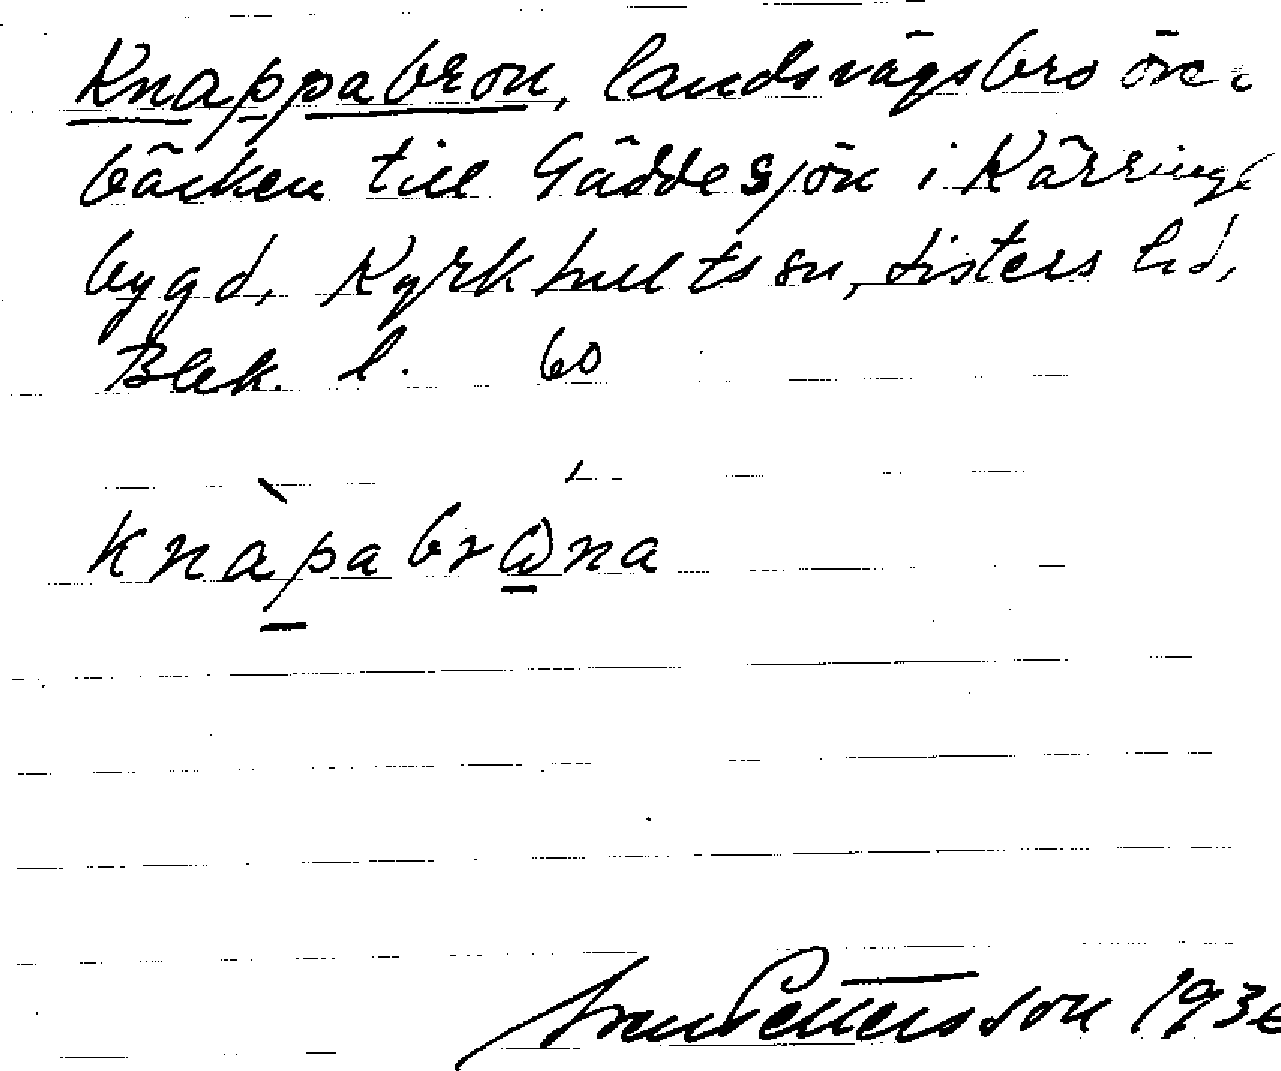 Knappabron, landsvägsbro över
bäcken till Gäddesjön i Käringe
bygd, Kyrkhults sn, Listers hd,
Blek. l. 60
knàpabrána
Sven Pettersson 193